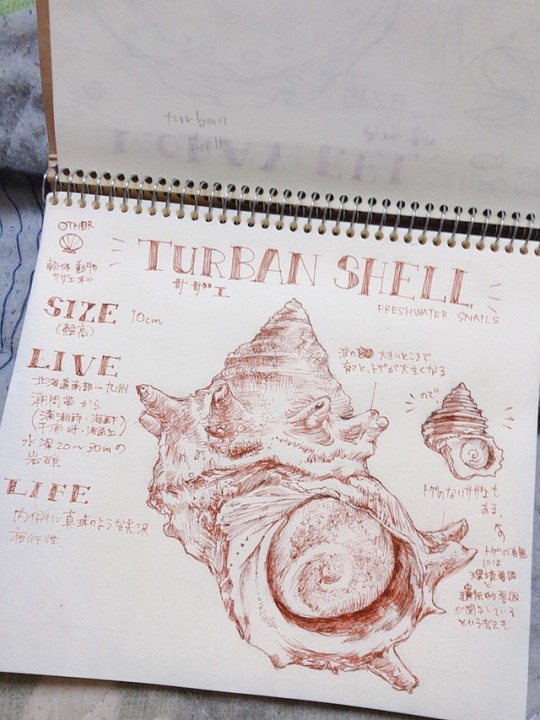 turban
shell
MORAY EEL
OTHER
軟体動物
サザエ科
TURBAN SHELL
サザエ
FRESHWATER SNAILS
SIZE 10cm
(殻高)
LIVE
北海道南部〜九州
潮間帯から
(満潮時:海面下
干潮時:海面上)
水深20〜30mの
岩礁
LIFE
内側に真珠のような光沢
夜行性
波の大きいところで
育つと、トゲが大きくなる
ので
トゲのないサザエも
ある。
トゲの有無
には
環境要因
と
遺伝的要因
が関わっている
という考えも